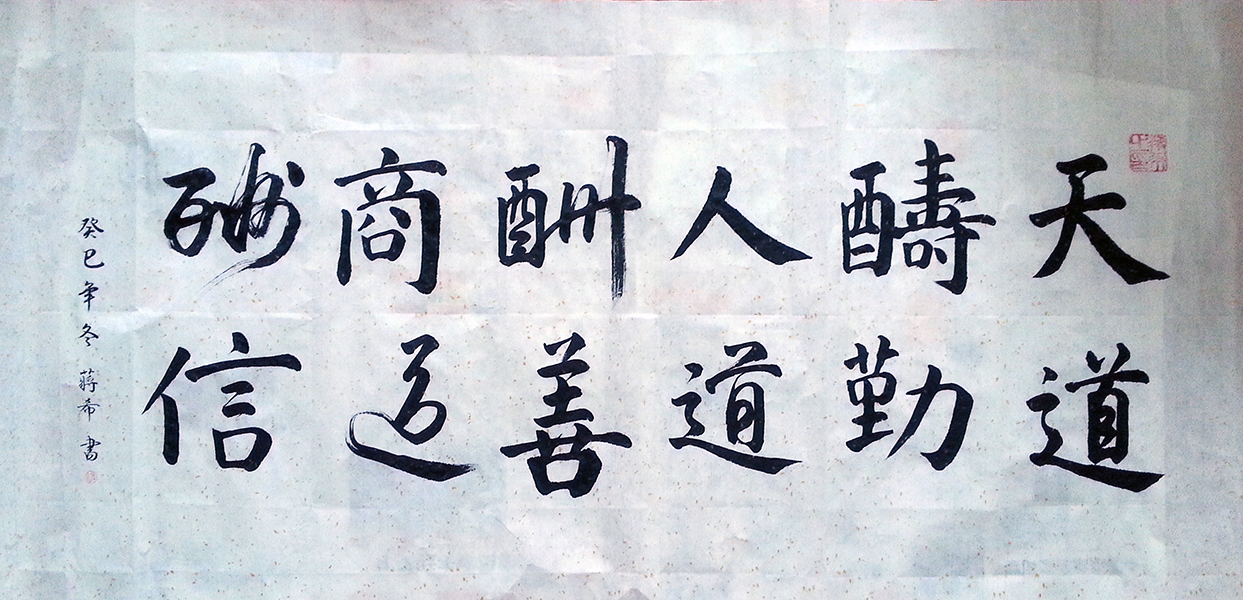 天道
醻勤
人道
酬善
商道
酬信
癸巳年冬 蔣希書